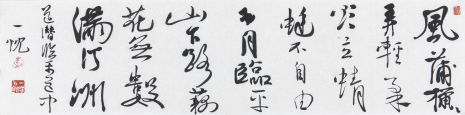 風蒲獵
弄輕柔
欲立蜻
蜓不自由
五月臨平
山下路藕
花無數
滿汀洲
道潛臨平道中
一悅書